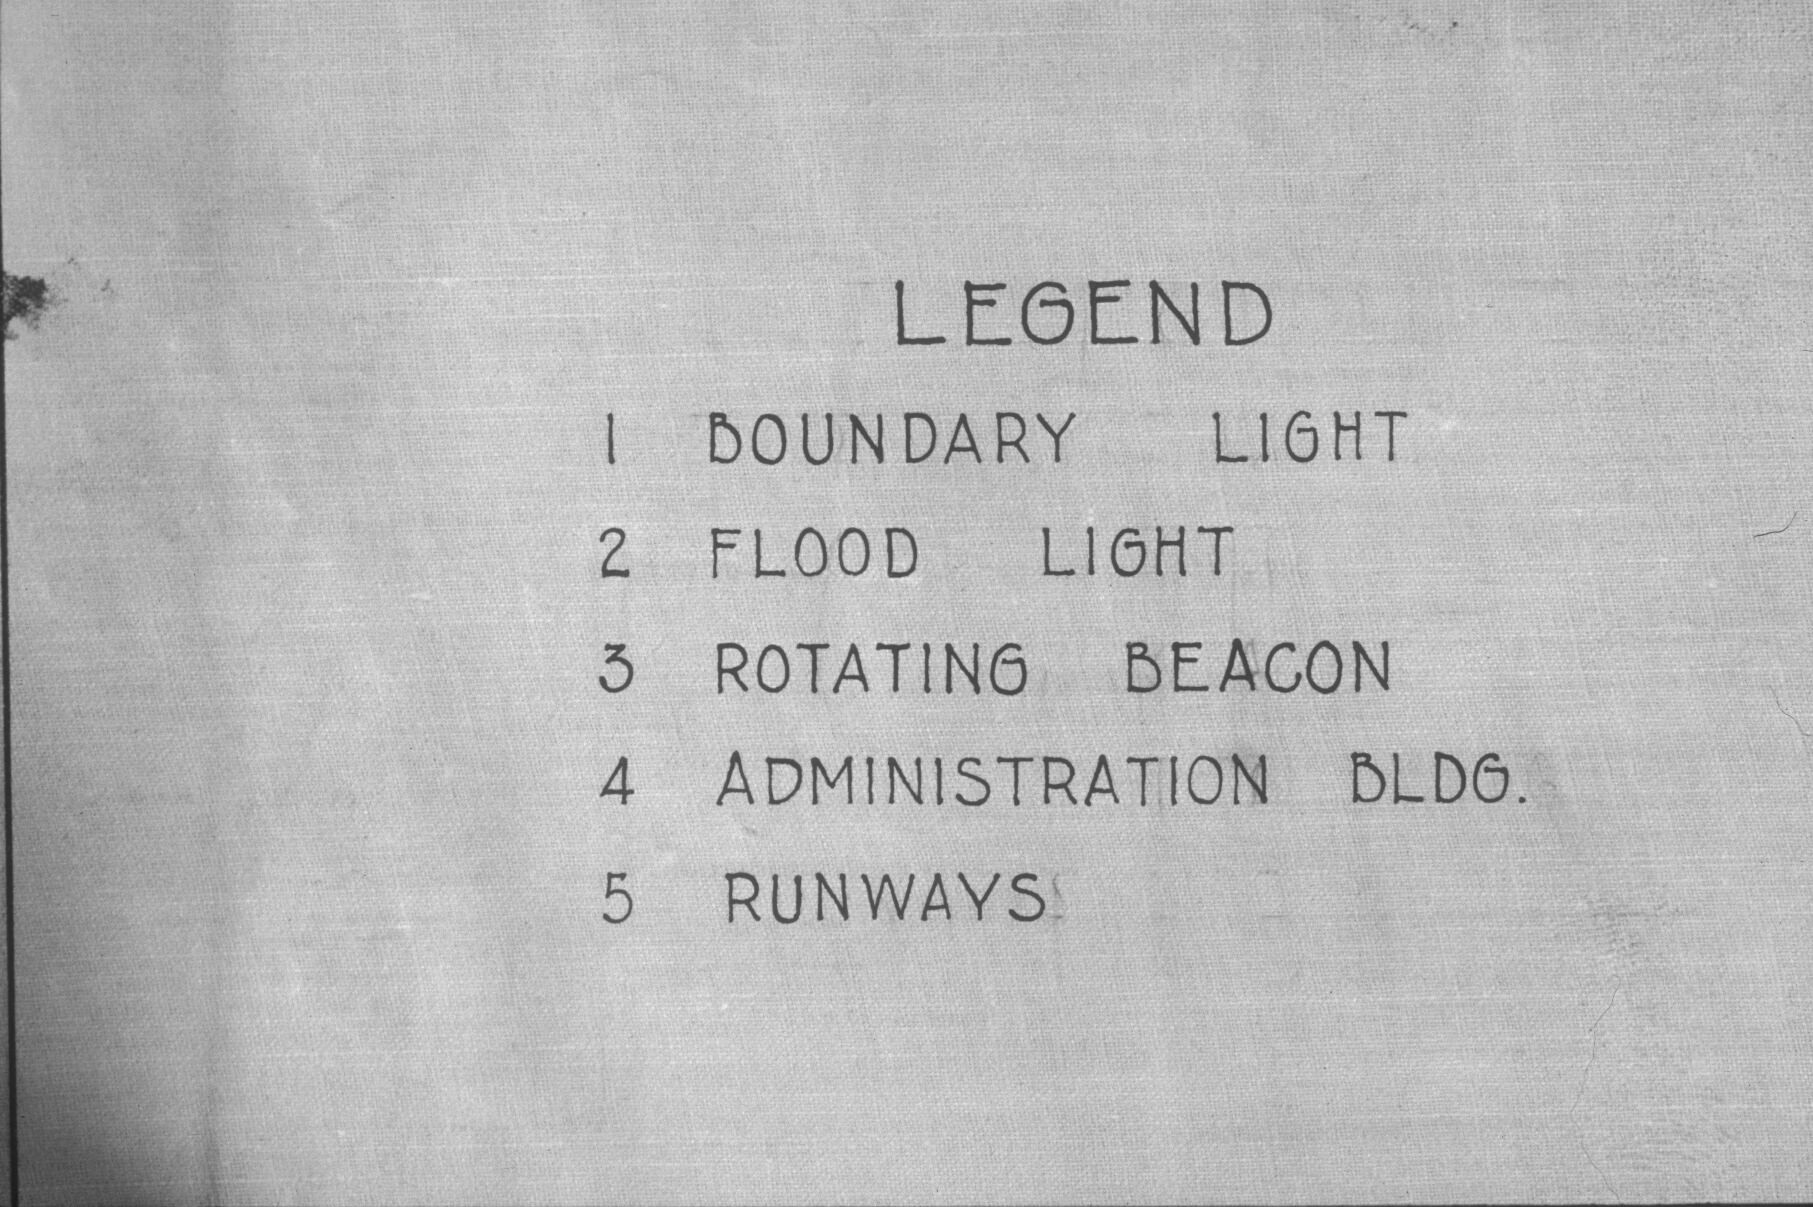 LEGEND
1 BOUNDARY LIGHT
2 FLOOD LIGHT
3 ROTATING BEACON
4 ADMINISTRATION BLDG.
5 RUNWAYS